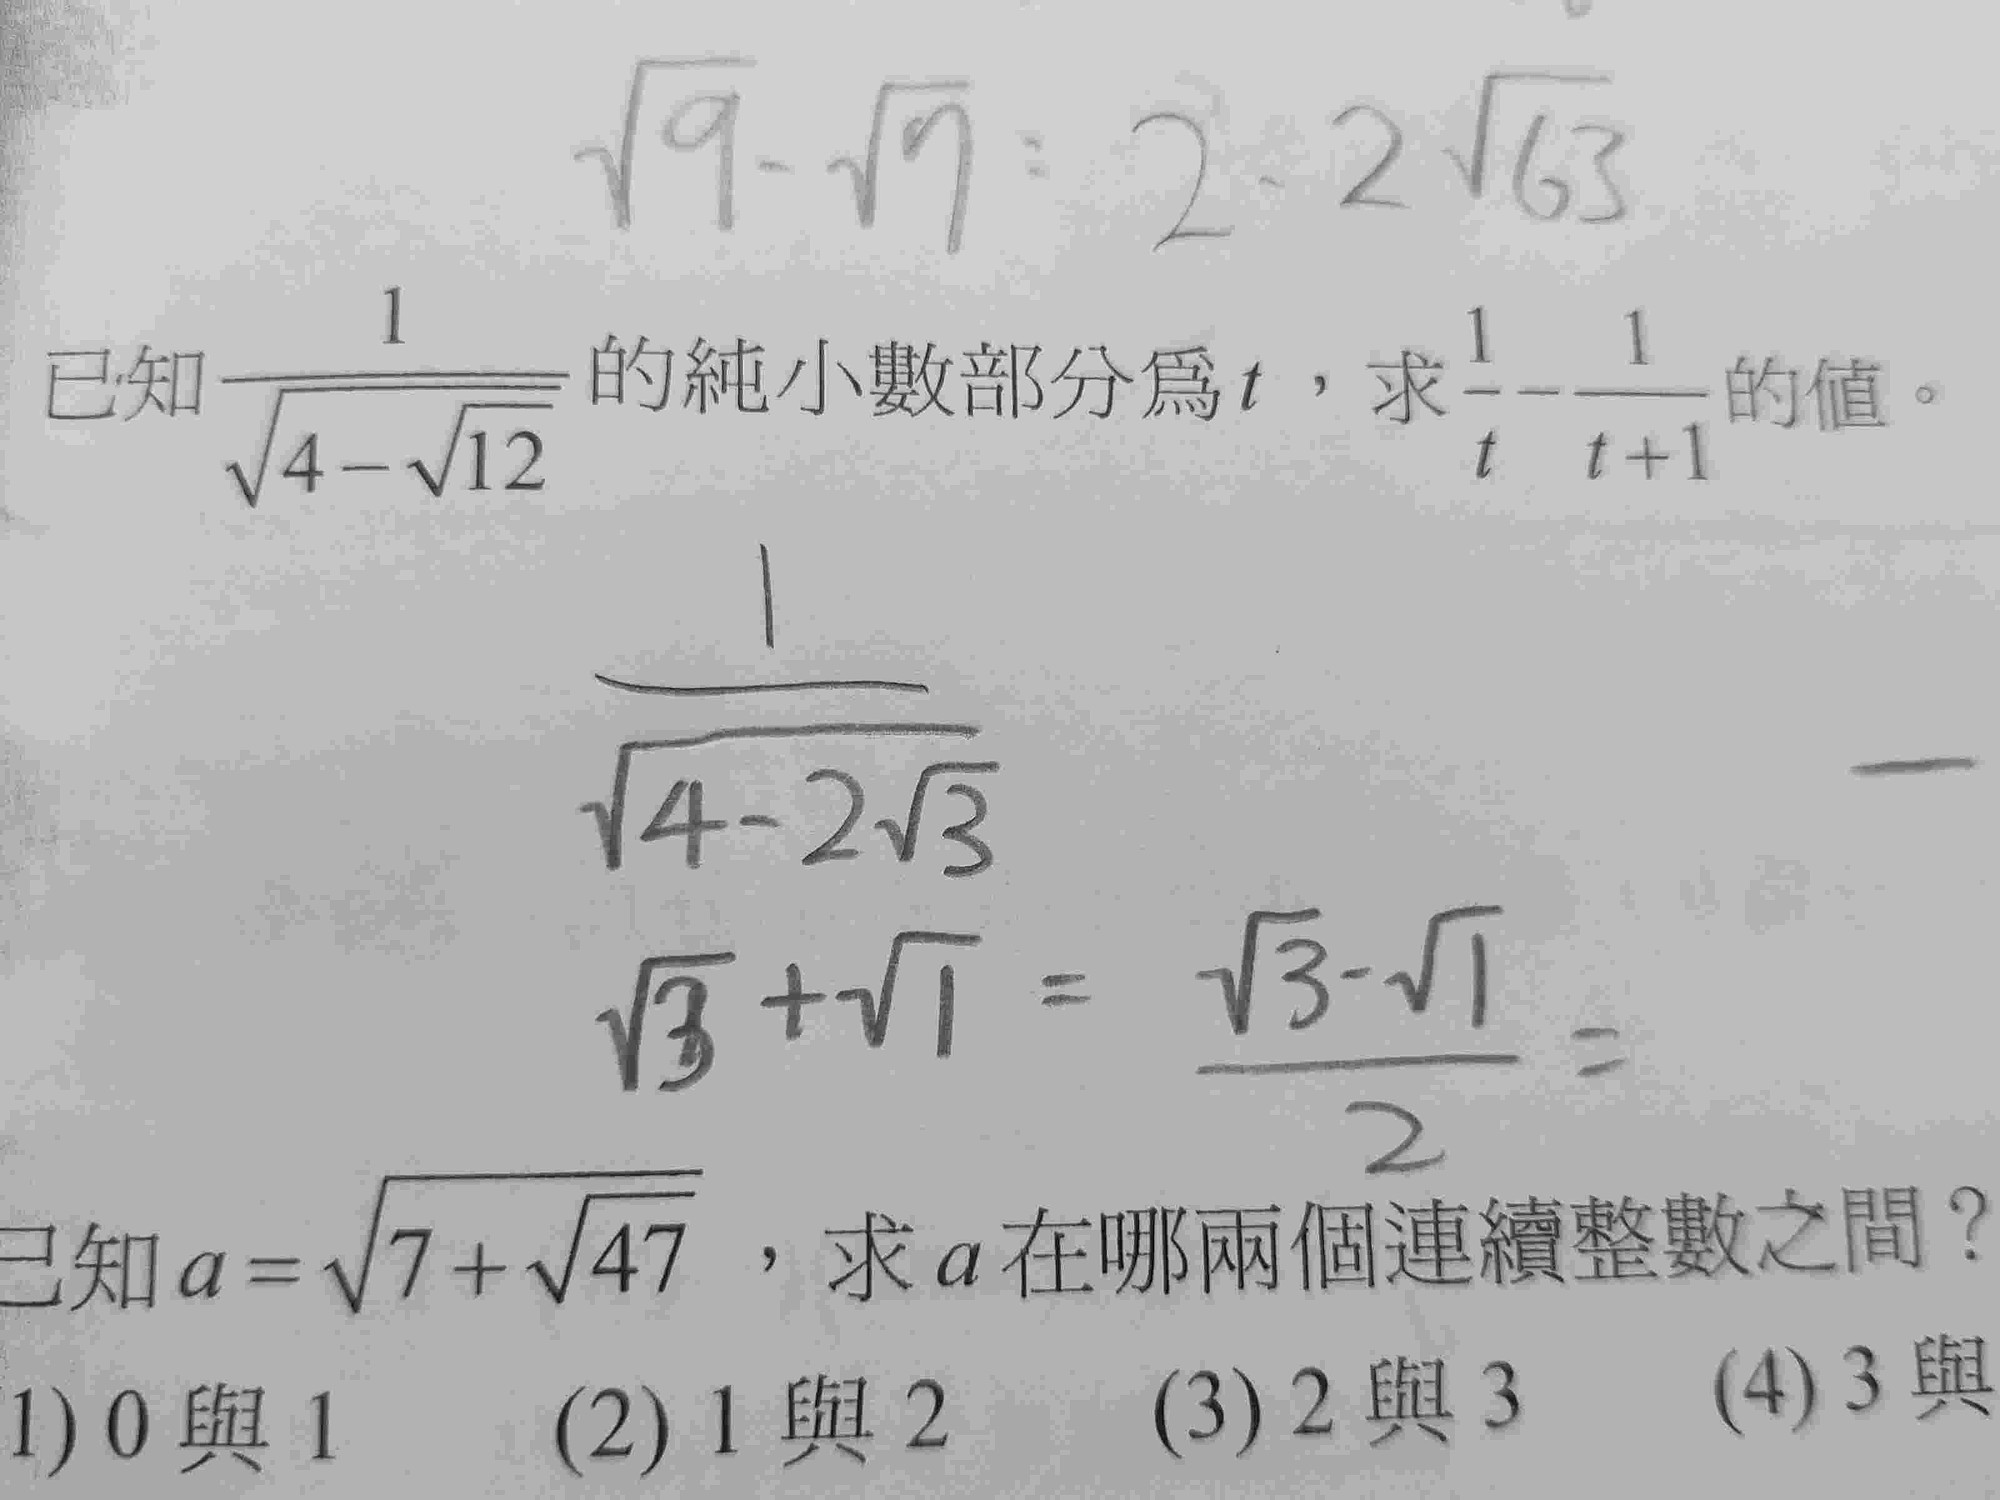 √9 - √7 = 2 - 2√63
已知 1/√(4-√12) 的純小數部分為 t，求 1/t - 1/(t+1) 的值。
1/√(4-2√3)
√3 + √1 = (√3-√1)/2 =
已知 a = √(7+√47)，求 a 在哪兩個連續整數之間？
1) 0 與 1 (2) 1 與 2 (3) 2 與 3 (4) 3 與